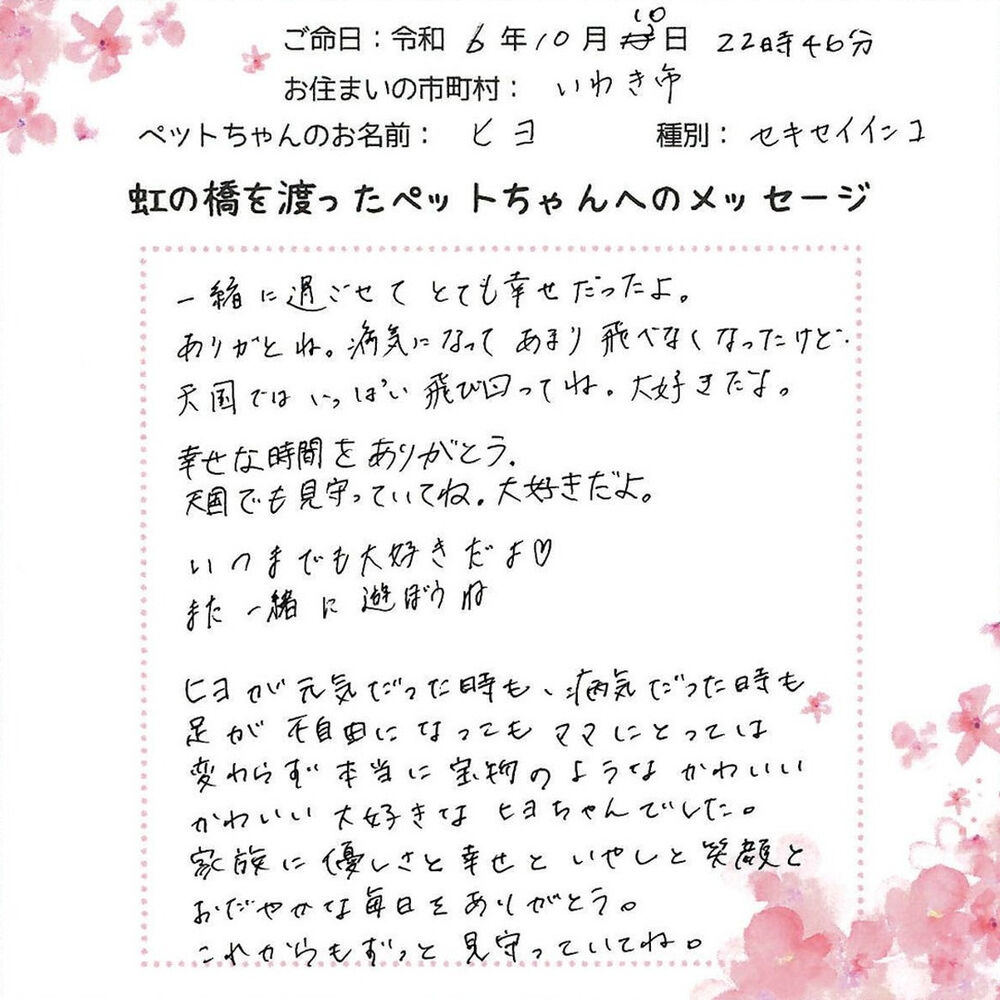 ご命日：令和 6 年 10 月 10 日 22時46分
お住まいの市町村： いわき市
ペットちゃんのお名前： ヒヨ 種別： セキセイインコ
虹の橋を渡ったペットちゃんへのメッセージ
一緒に過ごせて とても幸せだったよ。
ありがとね。病気になって あまり 飛べなくなったけど、
天国では いっぱい 飛び回ってね。大好きだよ。
幸せな時間を ありがとう。
天国でも見守っていてね。大好きだよ。
いつまでも大好きだよ♡
また一緒に遊ぼうね
ヒヨが元気だった時も、病気だった時も
足が不自由になっても ママにとっては
変わらず 本当に宝物のような かわいい
かわいい 大好きな ヒヨちゃんでした。
家族に優しさと幸せと いやしと笑顔と
おだやかな毎日をありがとう。
これからもずっと見守っていてね。